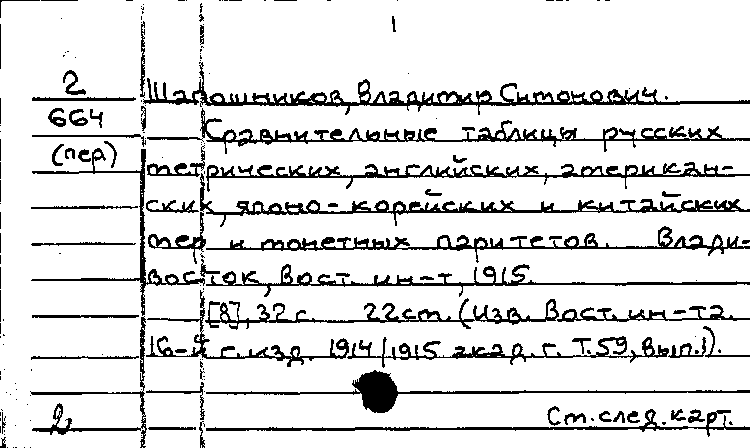 1
2
664
(пер)
Шапошников, Владимир Симонович.
Сравнительные таблицы русских
метрических, английских, американ-
ских, японо-корейских и китайских
мер и монетных паритетов. Влади-
восток, Вост. ин-т, 1915.
[8], 32 с. 22 см. (Изв. Вост. ин-та.
16-й г. изд. 1914/1915 акад. г. Т. 59, вып. 1).
2
См. след. карт.